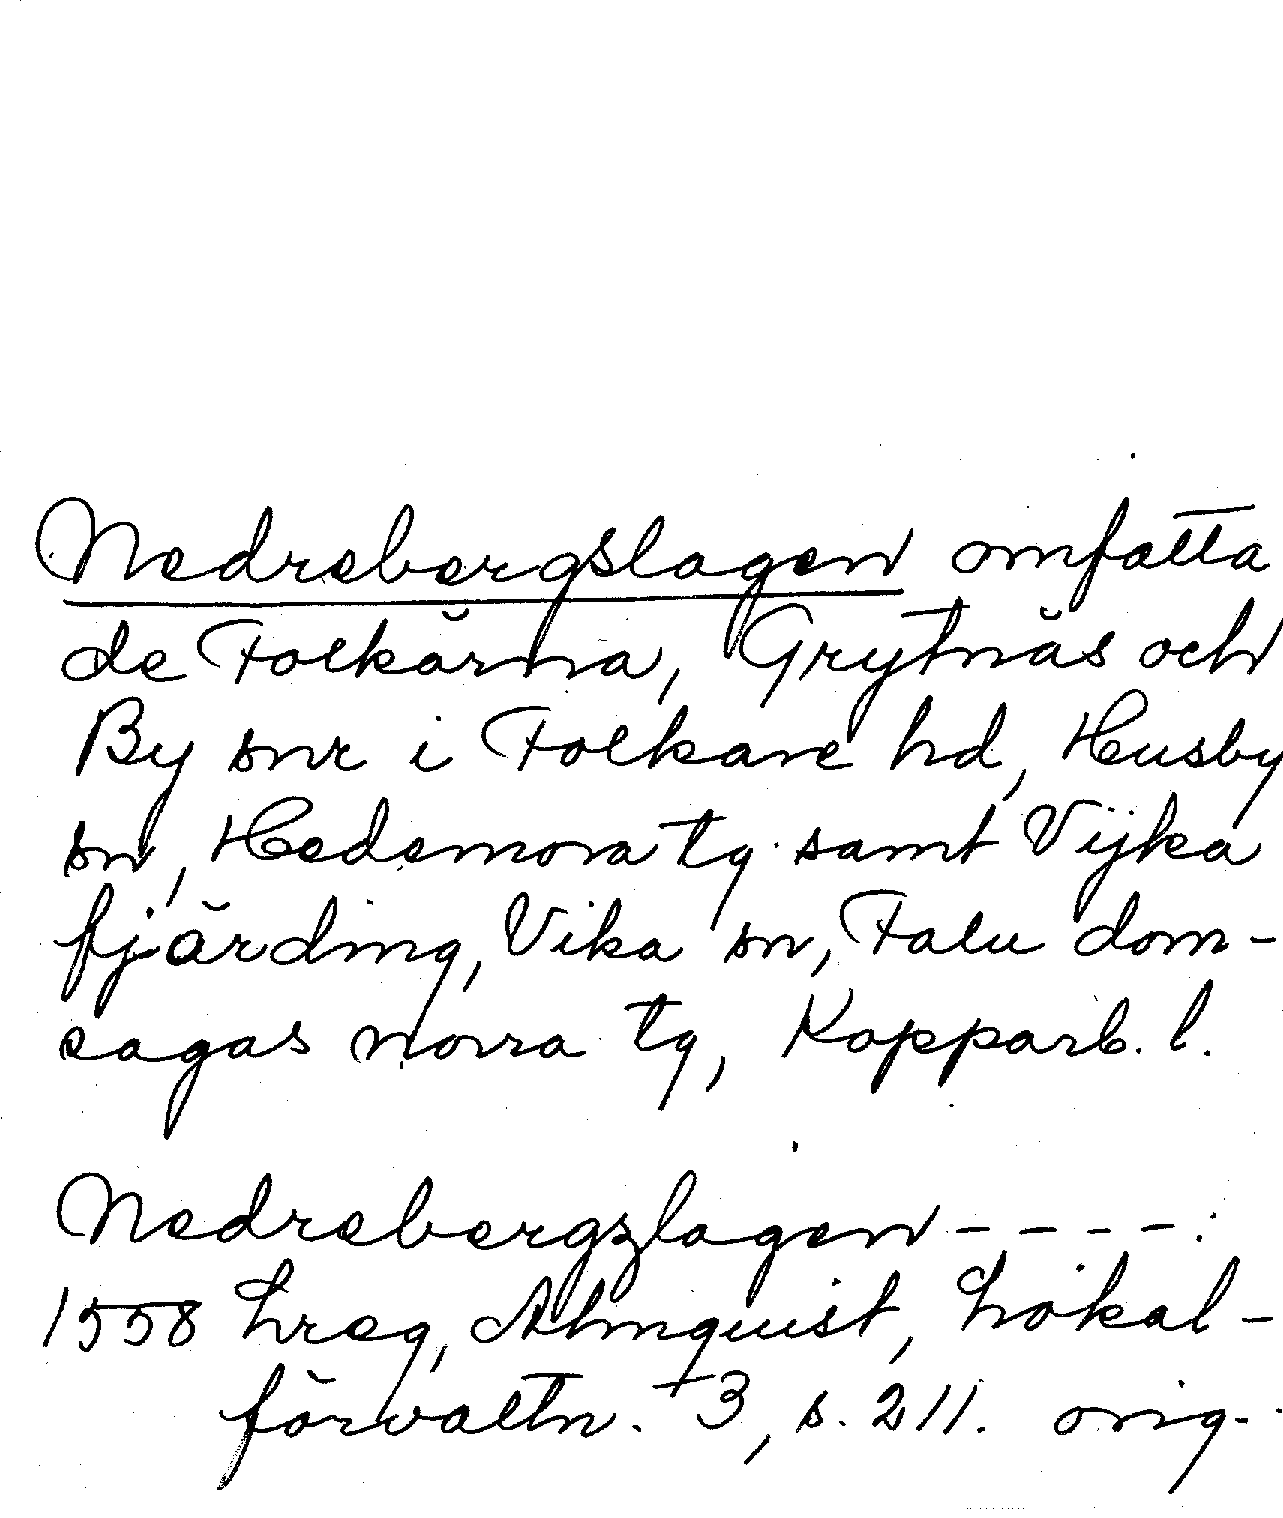 Nedrebergslagen omfatta
de Folkärna, Grytnäs och
By snr i Folkare hd, Husby
sn, Hedemora tg samt Vijka
fjärding, Vika sn, Falu dom-
sagas norra tg, Kopparb. l.
Nedrebergzlagen - - - - :
1558 Lreg, Almquist, Lokal-
förvaltn. 3, s. 211. orig.